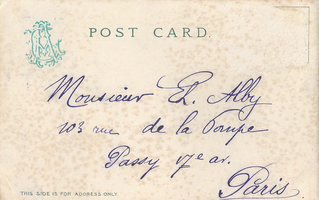 POST CARD
Monsieur Ch. Alby
103 rue de la Pompe
Passy 17e ar.
Paris.
THIS SIDE IS FOR ADDRESS ONLY.